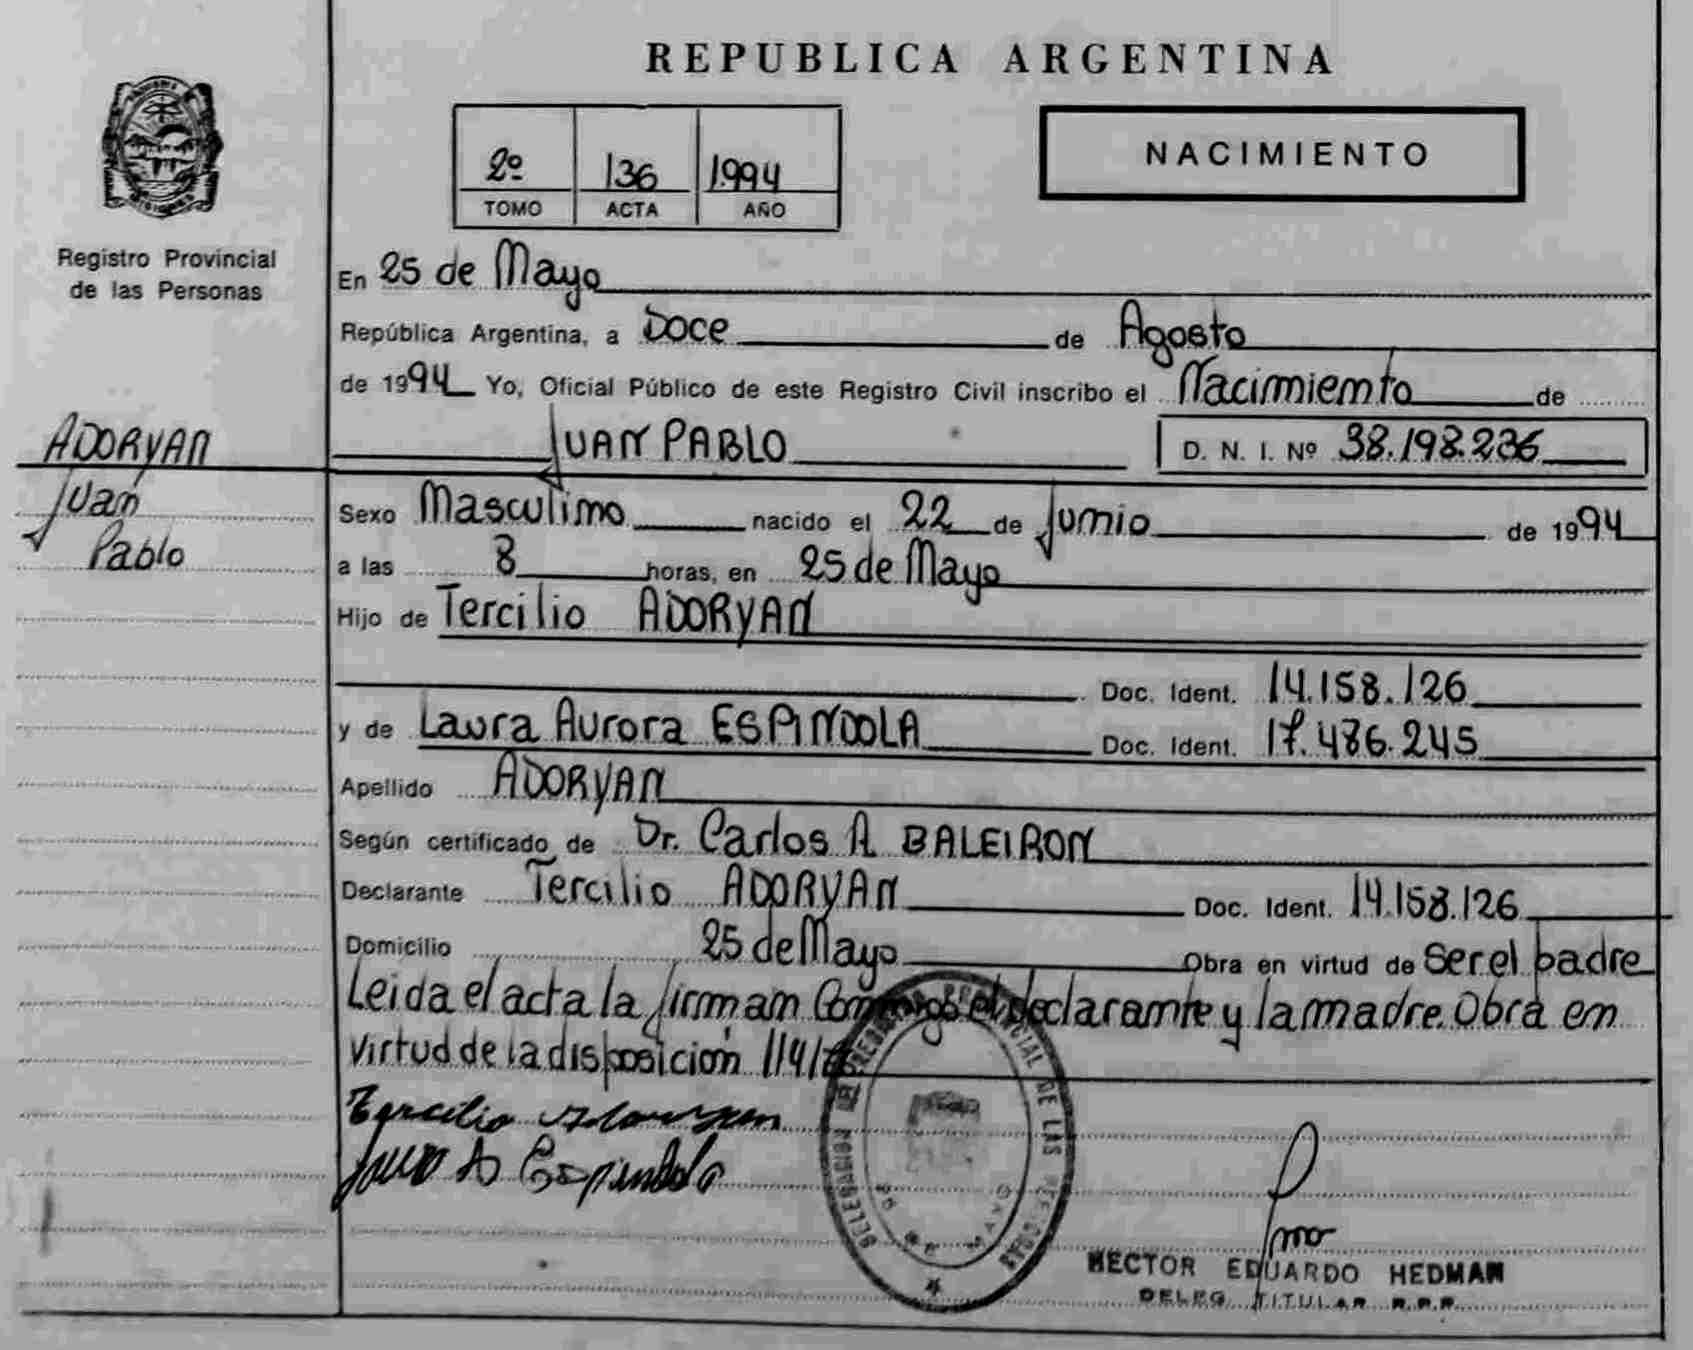 REPUBLICA ARGENTINA
NACIMIENTO
2º 136 1994
TOMO ACTA AÑO
Registro Provincial
de las Personas
ADORYAN
Juan
Pablo
En 25 de Mayo
República Argentina, a Doce de Agosto
de 1994 Yo, Oficial Público de este Registro Civil inscribo el Nacimiento de
JUAN PABLO D. N. I. Nº 38.198.236
Sexo Masculino nacido el 22 de Junio de 1994
a las 8 horas, en 25 de Mayo
Hijo de Tercilio ADORYAN
Doc. Ident. 14.158.126
y de Laura Aurora ESPINDOLA Doc. Ident. 17.486.245
Apellido ADORYAN
Según certificado de Dr. Carlos A BALEIRON
Declarante Tercilio ADORYAN Doc. Ident. 14.158.126
Domicilio 25 de Mayo Obra en virtud de Ser el padre
Leida el acta la firman Conmigo el declarante y la madre. Obra en
virtud de la disposición 114/
Tercilio Adoryan
Laura A Espindola
DELEGACION DEL REGISTRO PROVINCIAL DE LAS PERSONAS
25 DE MAYO
HECTOR EDUARDO HEDMAN
DELEG. TITULAR R.P.P.